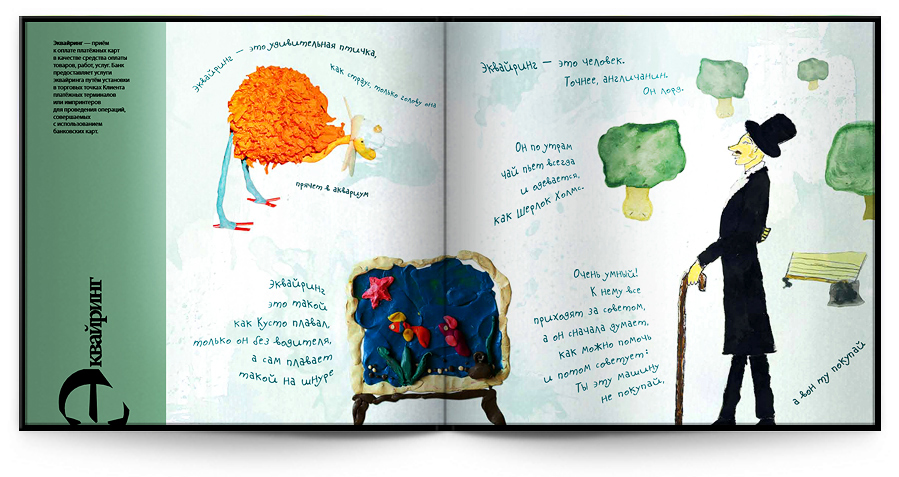 Эквайринг — приём
к оплате платёжных карт
в качестве средства оплаты
товаров, работ, услуг. Банк
предоставляет услуги
эквайринга путём установки
в торговых точках Клиента
платёжных терминалов
или импринтеров
для проведения операций,
совершаемых
с использованием
банковских карт.
Эквайринг
Эквайринг — это удивительная птичка,
как страус, только голову она
прячет в аквариум
Эквайринг
это такой
как Кусто плавал,
только он без водителя,
а сам плавает
такой на шнуре
Эквайринг — это человек.
Точнее, англичанин.
Он лорд.
Он по утрам
чай пьет всегда
и одевается,
как Шерлок Холмс.
Очень умный!
К нему все
приходят за советом,
а он сначала думает,
как можно помочь
и потом советует:
Ты эту машину
не покупай,
а вон ту покупай